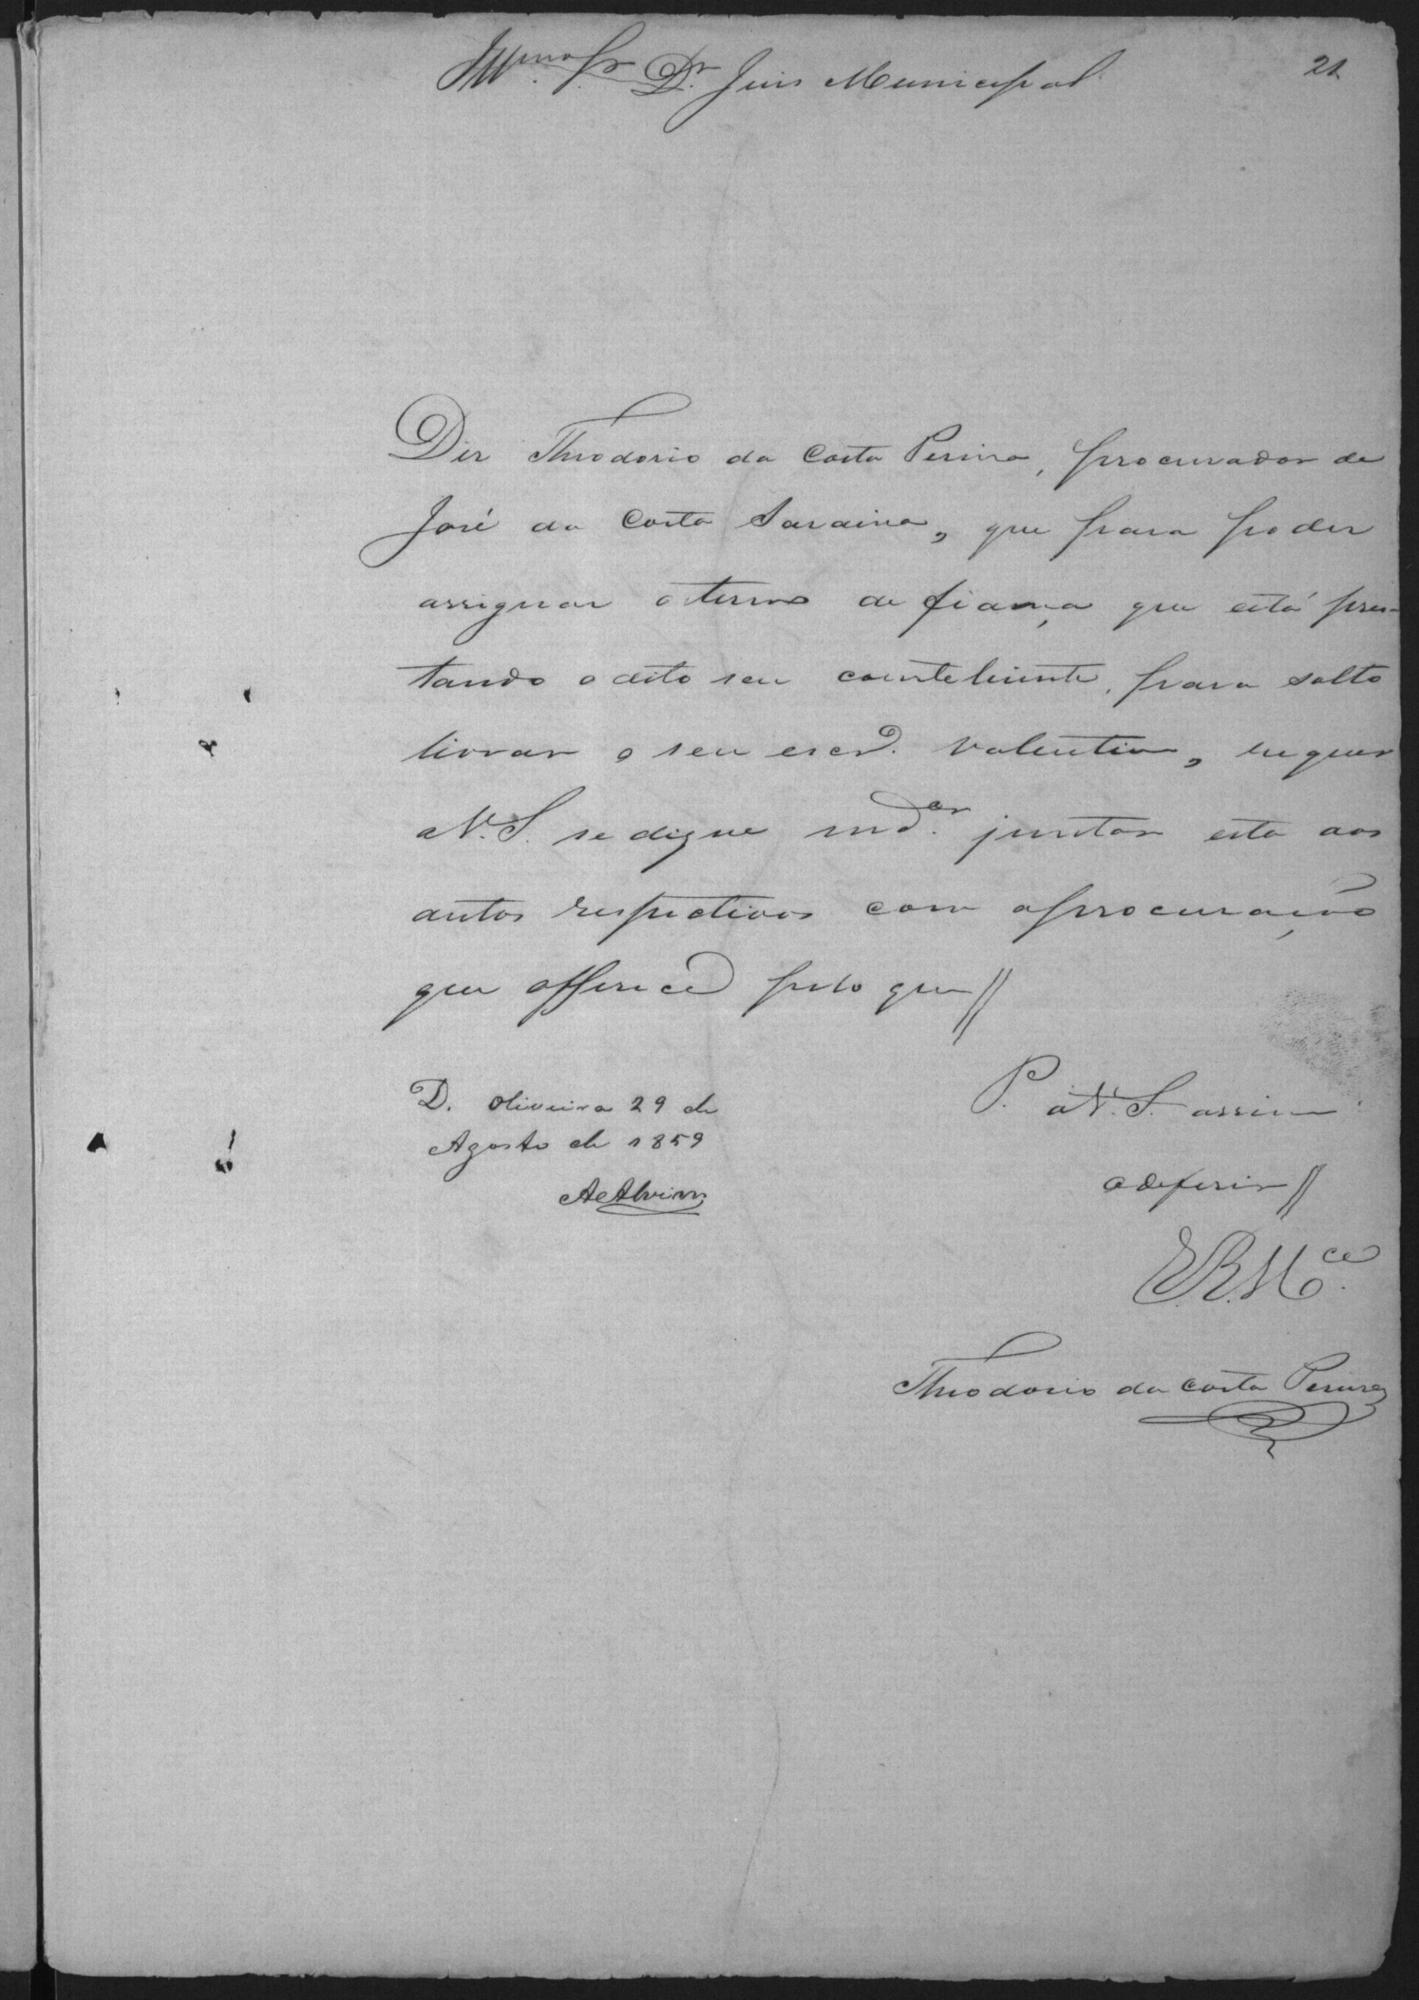 Illmo. Sr. Dr. Juis Municipal
21
Diz Theodorio da Costa Pereira, procurador de
José da Costa Saraiva, que para poder
assignar o termo de fiança que está pres-
tando o dito seu constetuinte, para solto
livrar o seu escrº. Valentim, requer
a V. S. se digne mdar. juntar esta aos
autos respectivos com a procuração
que offerece pelo que //
P. a V. S. assim
o deferir //
E. R. Mce.
D. Oliveira 29 de
Agosto de 1859
AAlvim
Theodorio da Costa Pereira